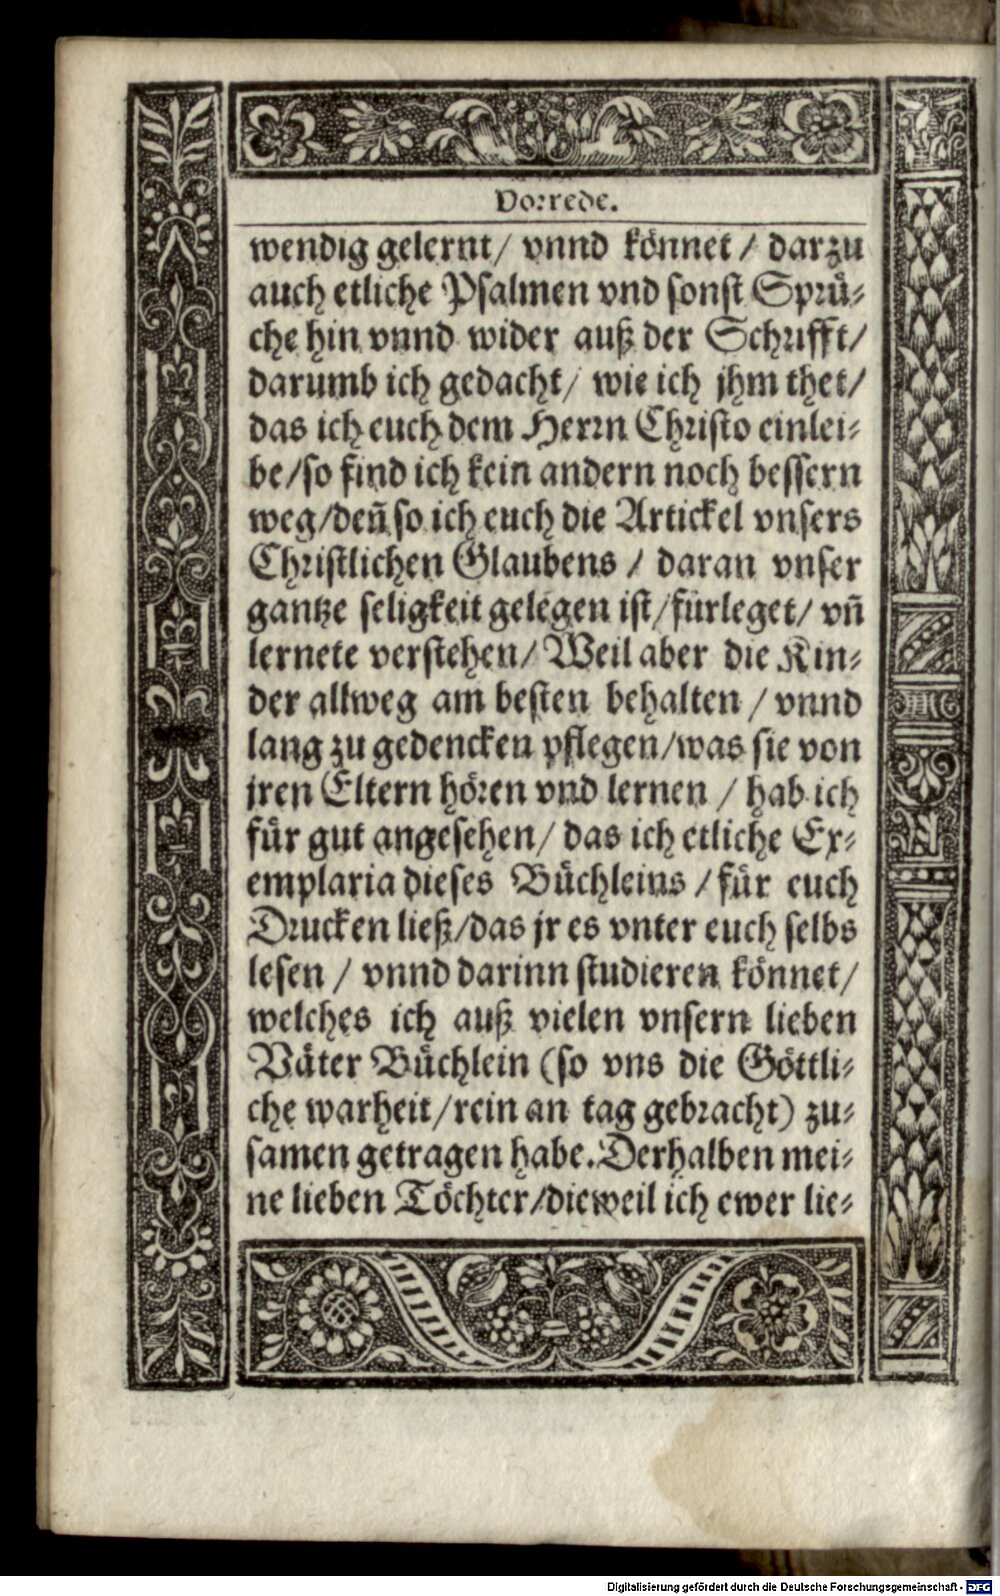 Vorrede.
wendig gelernt/ vnnd könnet / darzu
auch etliche Psalmen vnd sonst Sprü-
che hin vnnd wider auß der Schrifft/
darumb ich gedacht/ wie ich jhm thet/
das ich euch dem Herrn Christo einlei-
be/so find ich kein andern noch bessern
weg/deñ so ich euch die Artickel vnsers
Christlichen Glaubens / daran vnser
gantze seligkeit gelegen ist/fürleget/ vñ
lernete verstehen/ Weil aber die Kin-
der allweg am besten behalten / vnnd
lang zu gedencken pflegen/was sie von
jren Eltern hören vnd lernen / hab ich
für gut angesehen/ das ich etliche Ex-
emplaria dieses Büchleins / für euch
Drucken ließ/das jr es vnter euch selbs
lesen / vnnd darinn studieren könnet/
welches ich auß vielen vnsern lieben
Väter Büchlein (so vns die Göttli-
che warheit/rein an tag gebracht) zu-
samen getragen habe. Derhalben mei-
ne lieben Töchter/dieweil ich ewer lie-
Digitalisierung gefördert durch die Deutsche Forschungsgemeinschaft - DFG